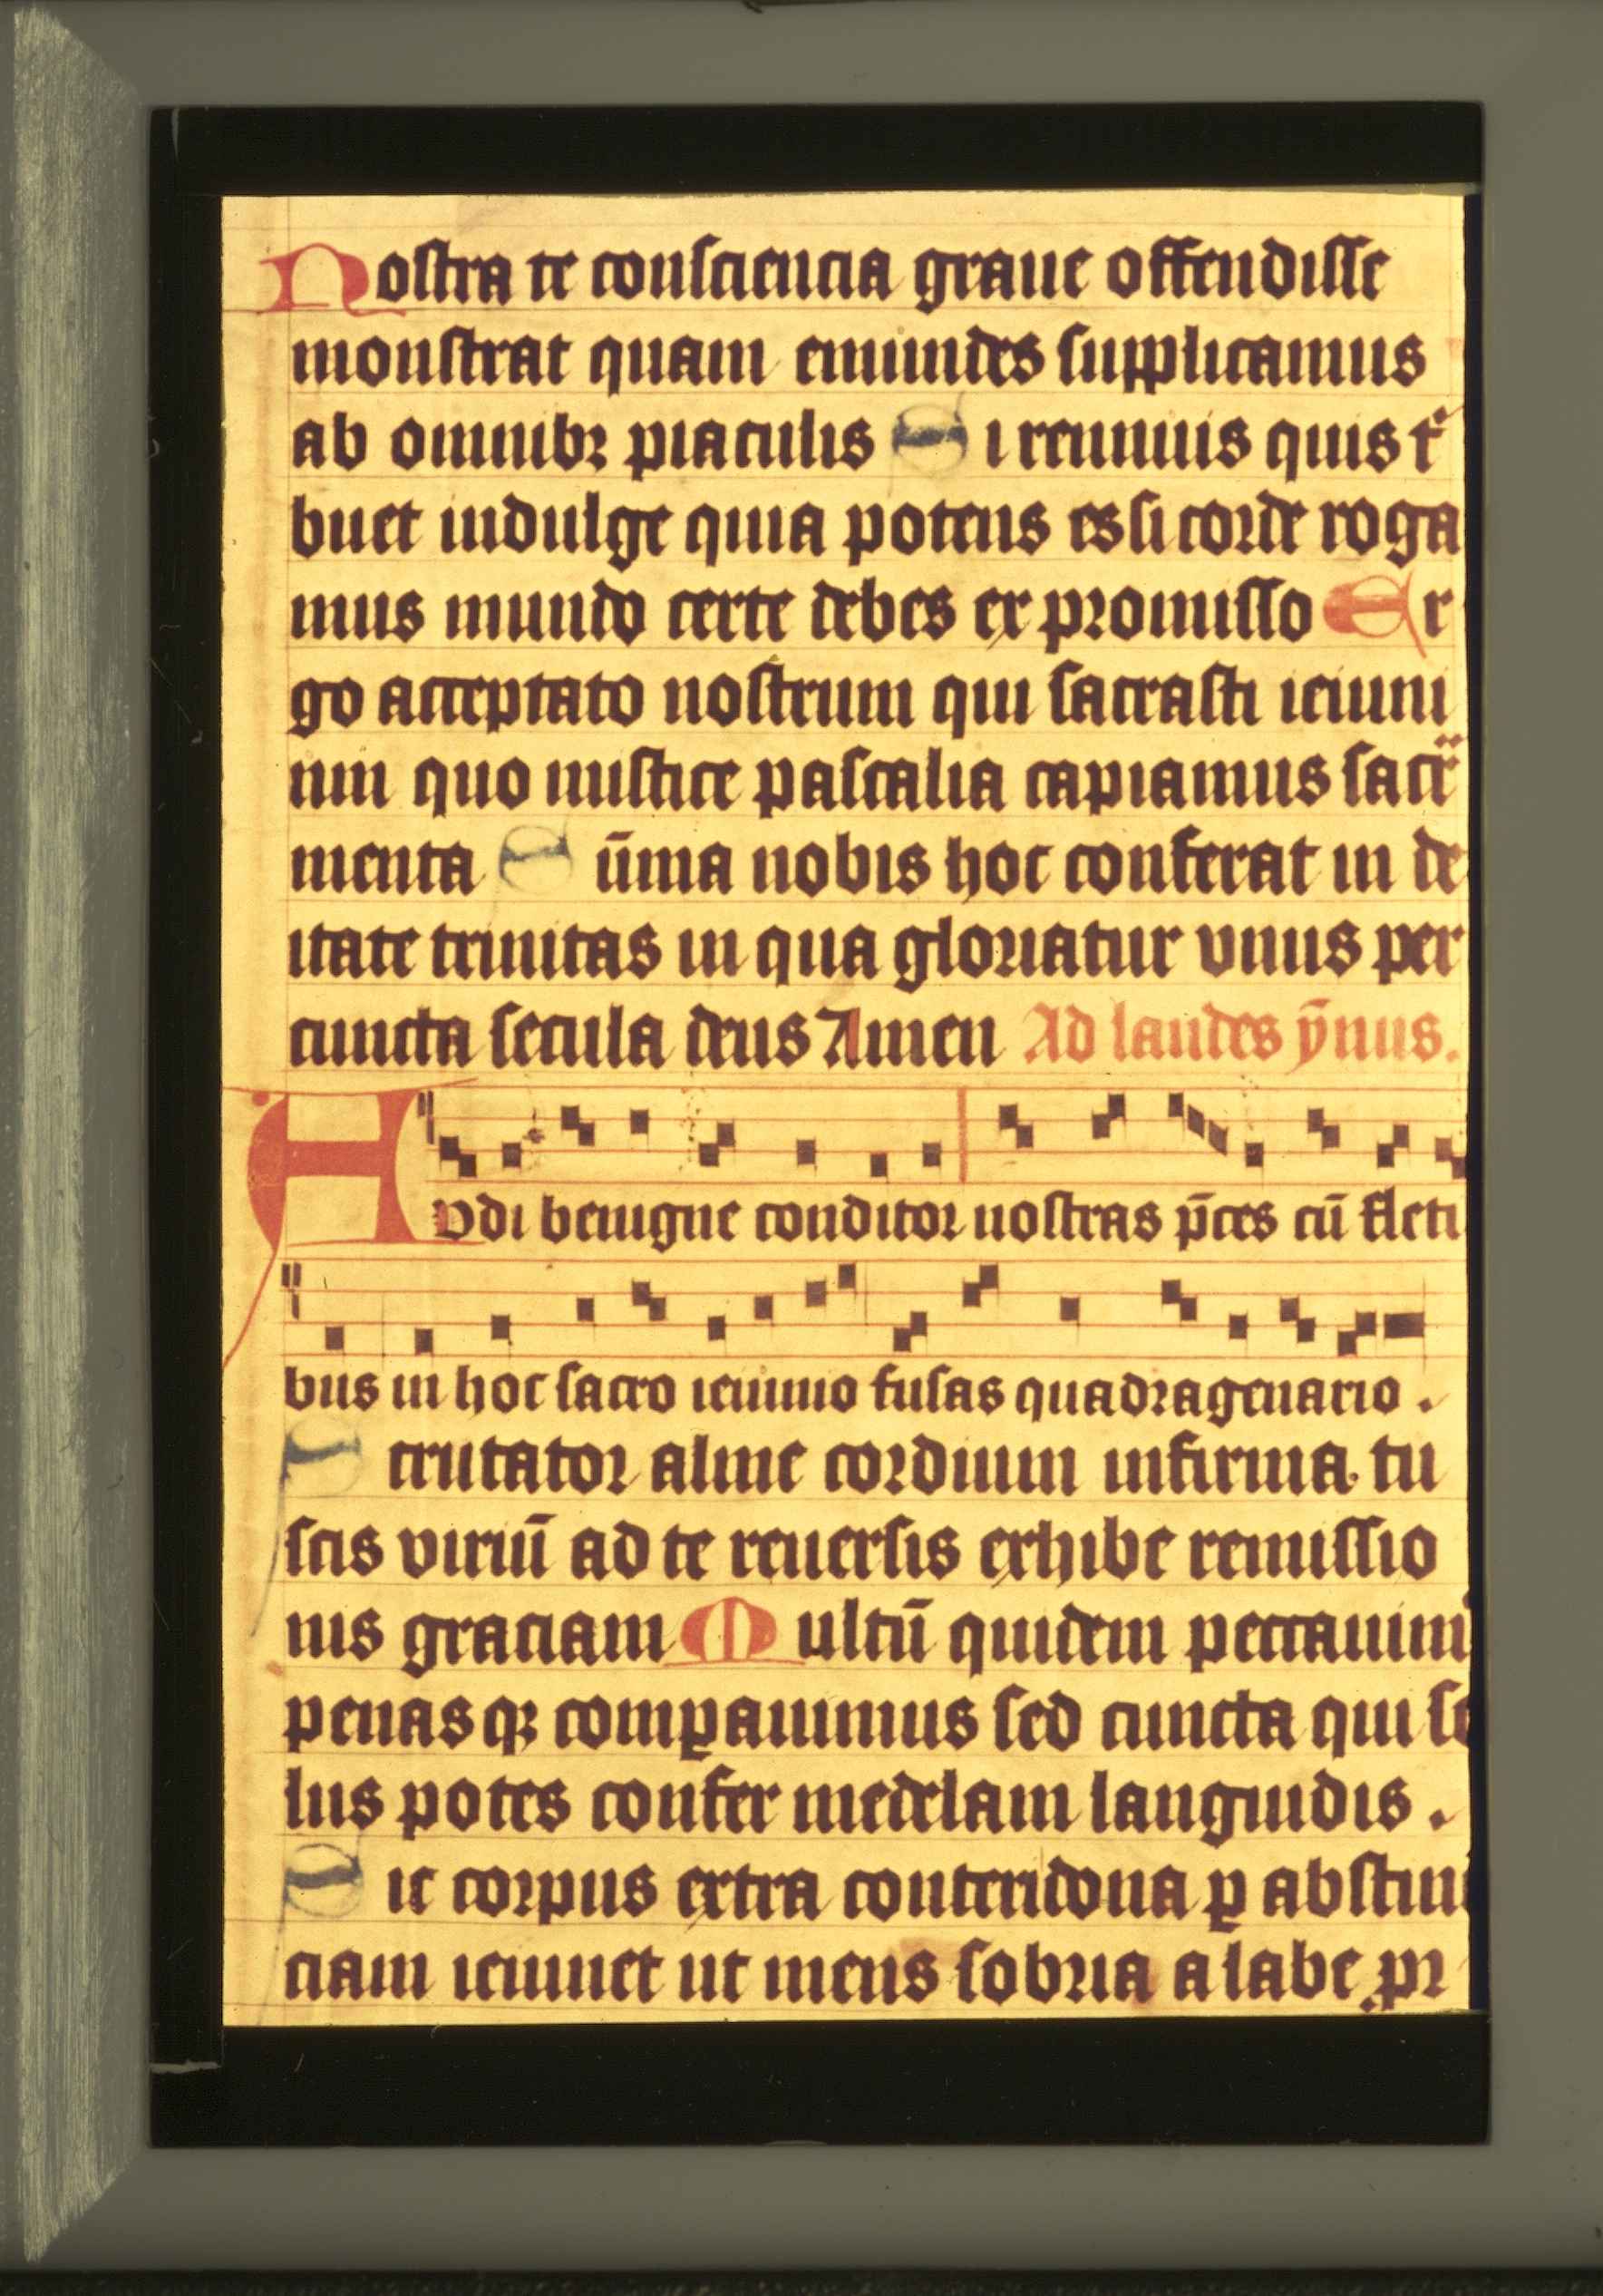 Nostra te consciencia graue offendisse
monstrat quam emundes supplicamus
ab omnibꝫ piaculis Si rennuis quis tͥ
buet indulge quia potens es si corde roga
mus mundo certe debes ex promisso Er
go acceptato nostrum qui sacrasti ieiuni
um quo mistice pascalia capiamus sacᷓr
menta Sūma nobis hoc conferat in de
itate trinitas in qua gloriatur vnus per
cuncta secula deus Amen Ad laudes ȳnus.
Avdi benigne conditor nostras p̄ces cū fleti
bus in hoc sacro ieiunio fusas quadragenario .
Scrutator alme cordium infirma tu
scis viriū ad te reuersis exhibe remissio
nis graciam Multū quidem peccauimꝰ
penasqꝫ comꝑauimus sed cuncta qui so
lus potes confer medelam languidis .
Sic corpus extra conteri dona ꝑ abstini
ciam ieiunet ut mens sobria a labe pr